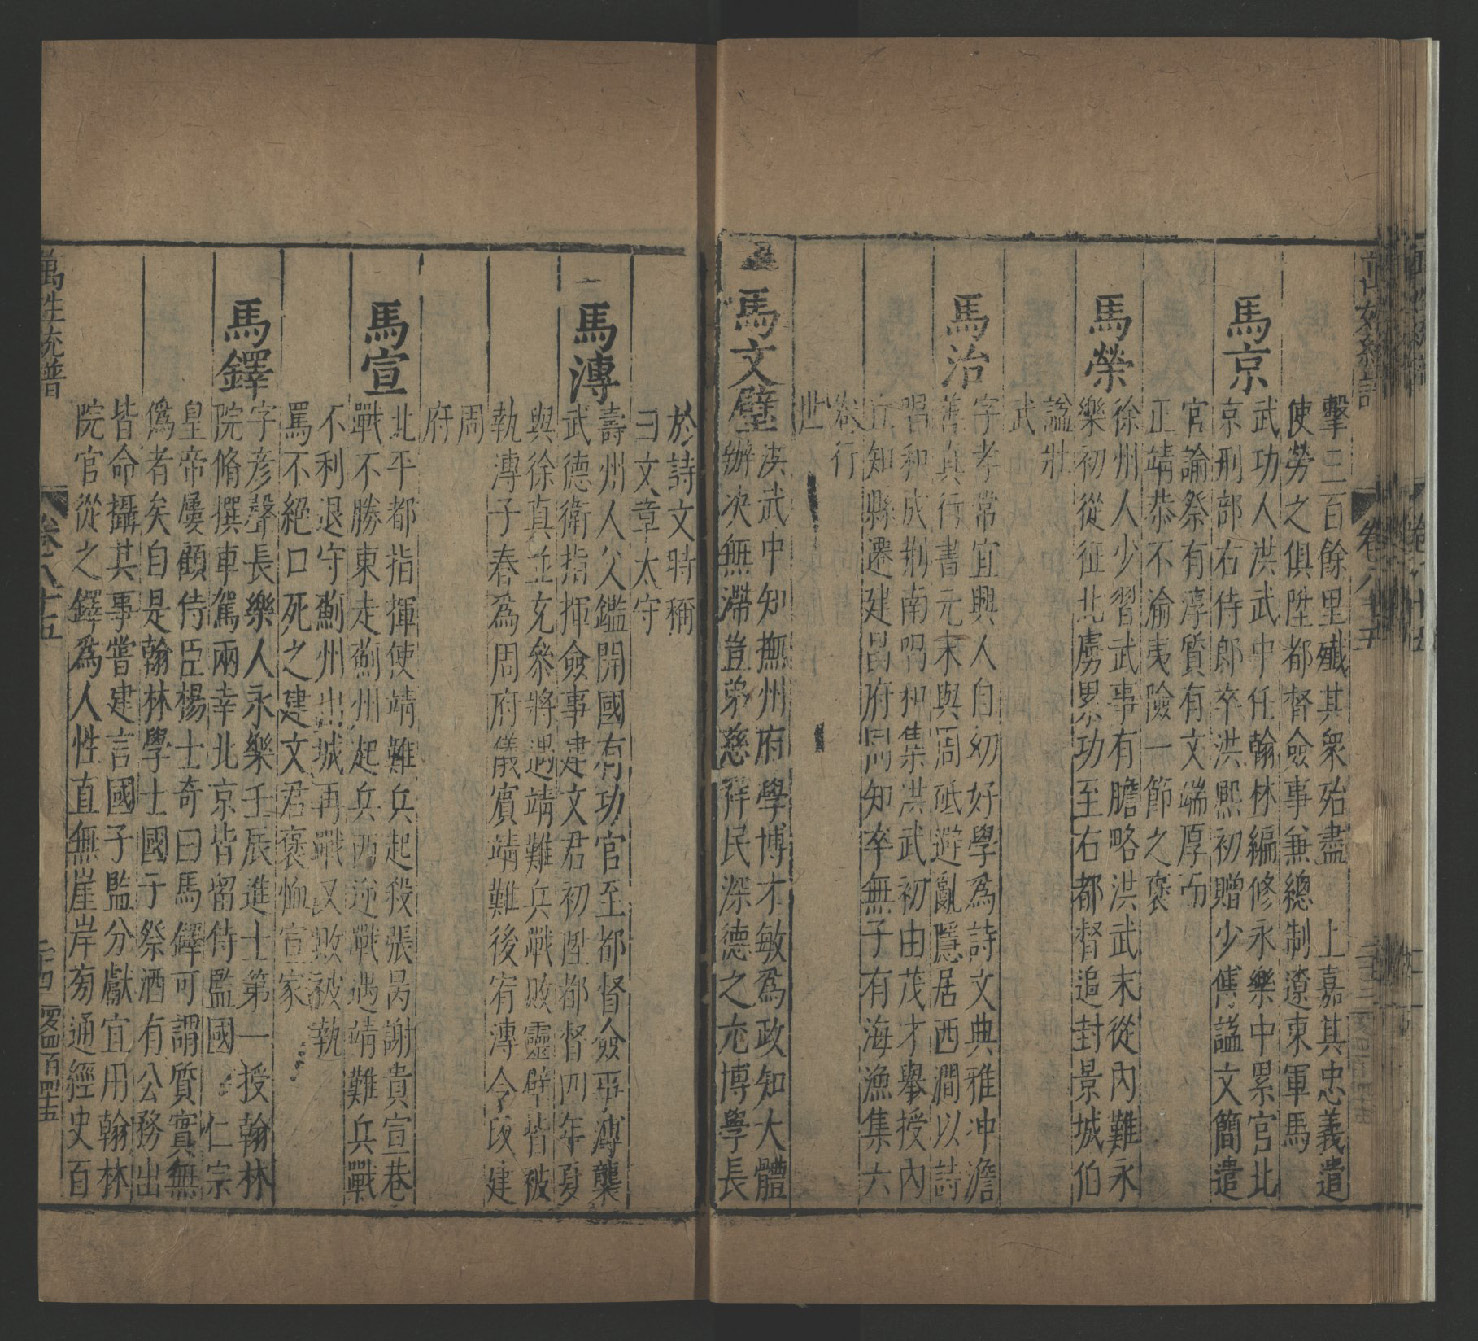 擊三百餘里殲其衆殆盡 上嘉其忠義遣
使勞之俱陞都督僉事兼總制遼東軍馬
馬京
武功人洪武中任翰林編修永樂中累官北
京刑部右侍郎卒洪熙初贈少傅謚文簡遣
官諭祭有淳質有文端厚而
正靖恭不渝夷險一節之褒
馬榮
徐州人少習武事有膽略洪武末從內難永
樂初從征北虜累功至右都督追封景城伯
謚壯
武
馬治
字孝常宜興人自幼好學為詩文典雅冲澹
善真行書元末與周砥避亂隱居西澗以詩
唱和成荆南唱和集洪武初由茂才舉授內
丘知縣遷建昌府同知卒無子有海漁集六
卷行
世
馬文璧
洪武中知撫州府學博才敏為政知大體
辦決無滯豈弟慈祥民深德之尤博學長
於詩文時稱
曰文章太守
馬溥
壽州人父鑑開國有功官至都督僉事溥襲
武德衛指揮僉事建文君初陞都督四年夏
與徐真並充參將遇靖難兵戰敗靈壁皆被
執溥子春為周府儀賓靖難後宥溥令改建
周
府
馬宣
北平都指揮使靖難兵起殺張昺謝貴宣巷
戰不勝東走薊州起兵西逆戰遇靖難兵戰
不利退守薊州出城再戰又敗被執
罵不絕口死之建文君褒恤宣家
馬鐸
字彥聲長樂人永樂壬辰進士第一授翰林
院脩撰車駕兩幸北京皆留侍監國 仁宗
皇帝屢顧侍臣楊士奇曰馬鐸可謂質實無
偽者矣自是翰林學士國子祭酒有公務出
皆命攝其事嘗建言國子監分獻宜用翰林
院官從之鐸為人性直無崖岸旁通經史百
萬姓統譜
卷八十五
二十四